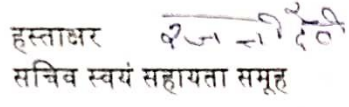 हस्ताक्षर रजनी देवी
सचिव स्वयं सहायता समूह